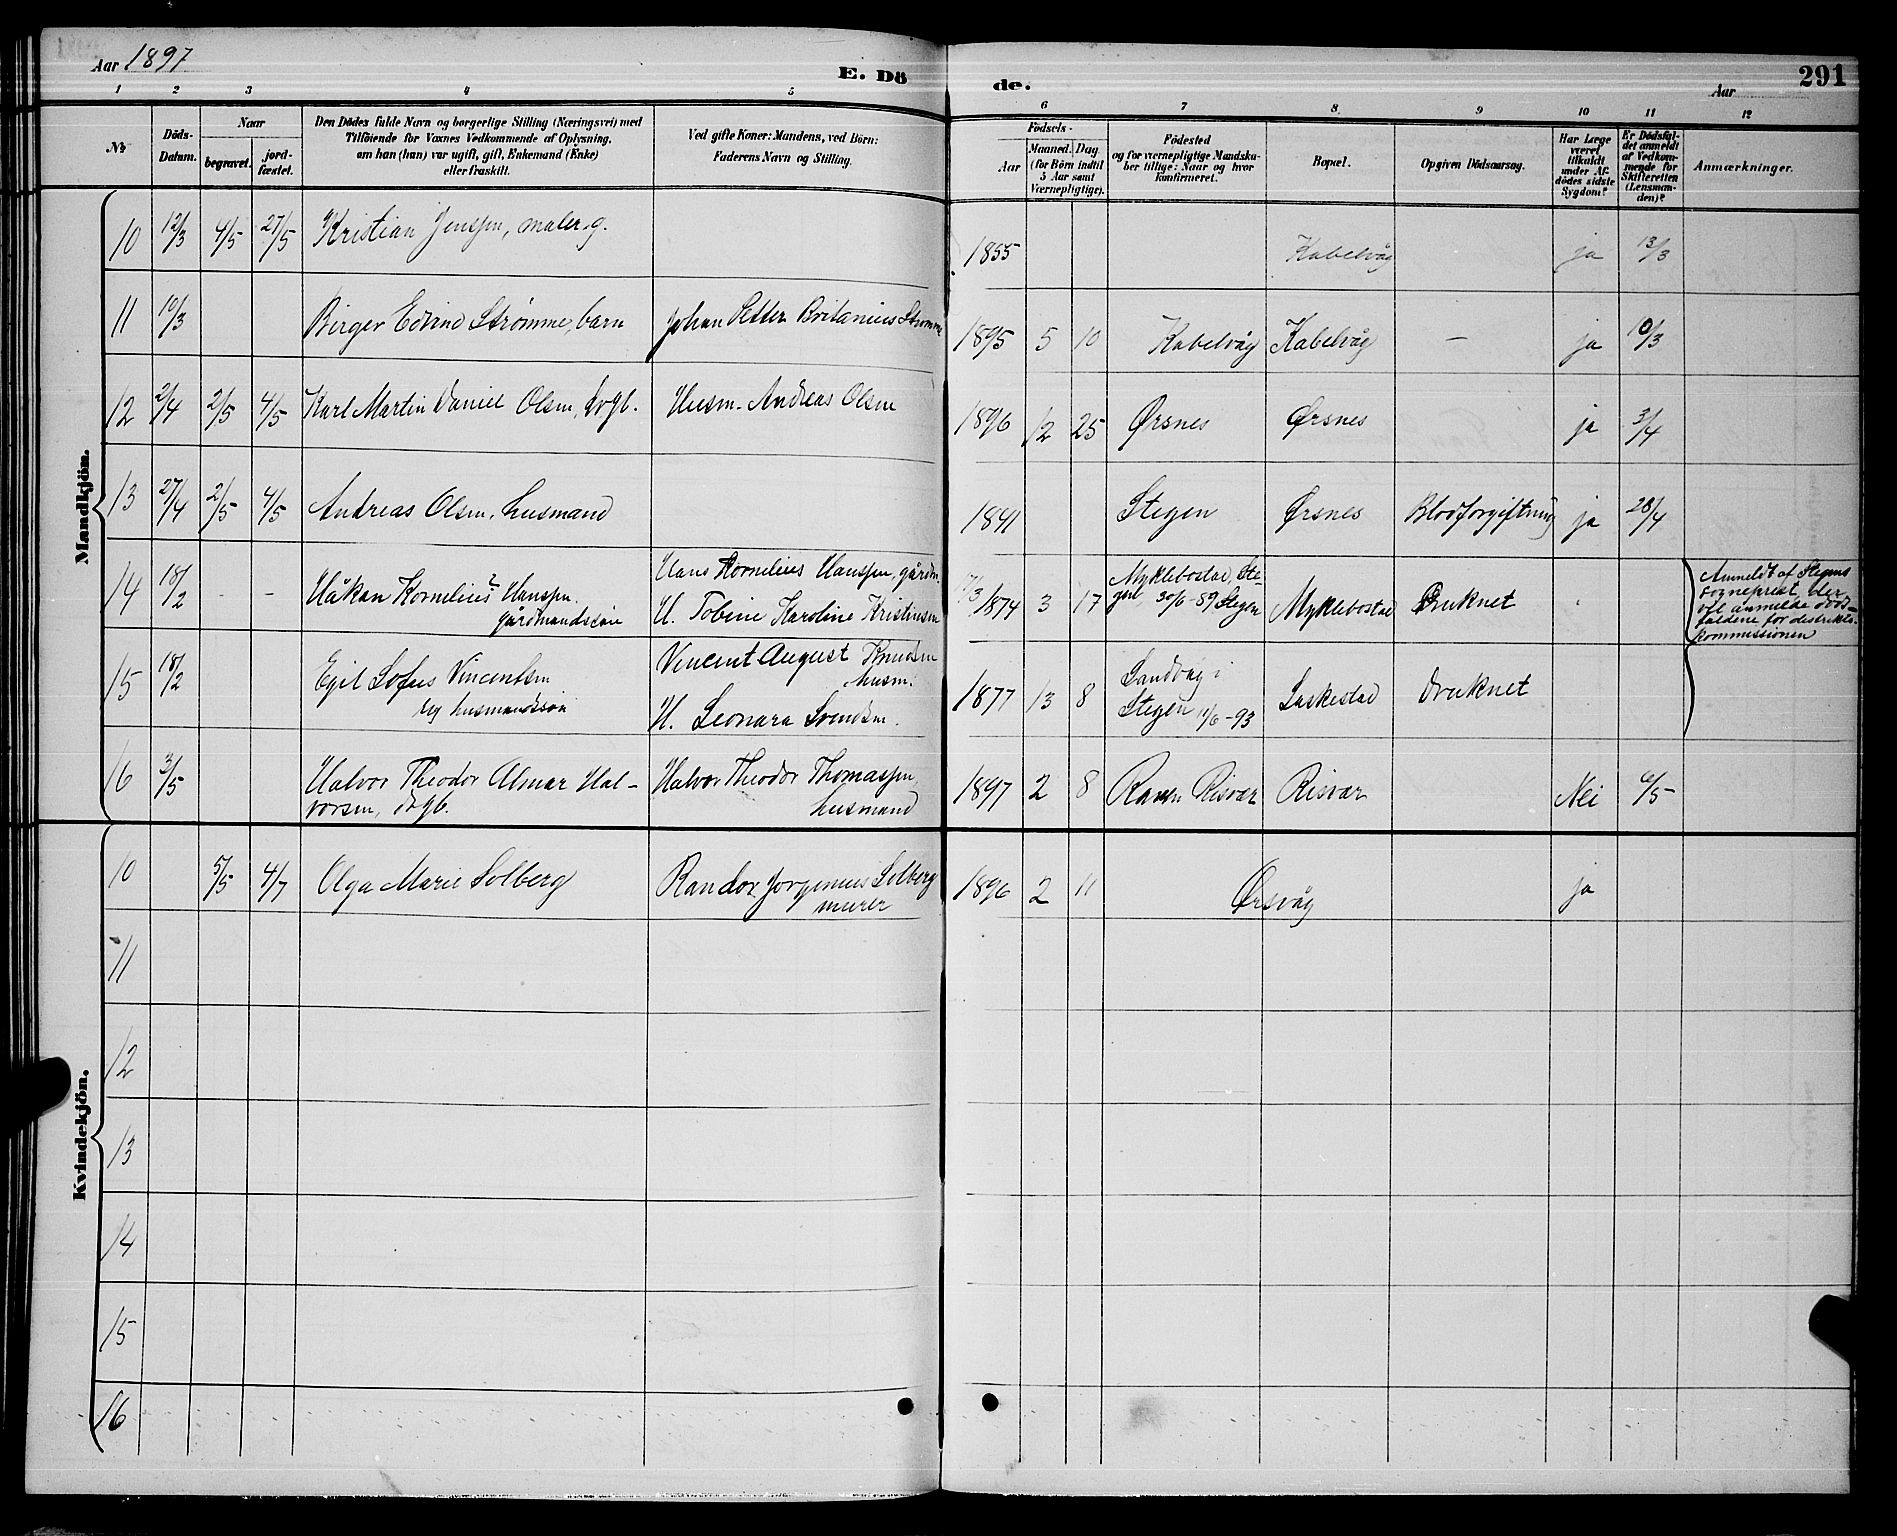 Aar 1897
E. Dö
de.
Aar
291
1 2 3 4 5 6 7 8 9 10 11 12
№
Döds-
Datum.
Naar
begravet.
jord-
fæstet.
Den Dödes fulde Navn og borgerlige Stilling (Næringsvei) med
Tilföiende for Voxnes Vedkommende af Oplysning,
om han (hun) var ugift, gift, Enkemand (Enke)
eller fraskilt.
Ved gifte Koner: Mandens, ved Börn:
Faderens Navn og Stilling.
Födsels-
Aar
Maaned. Dag
(for Börn indtil
5 Aar samt
Værnepligtige).
Födested
og for værnepligtige Mandska-
ber tillige: Naar og hvor
konfirmeret.
Bopæl.
Opgiven Dödsaarsag.
Har Læge
været
tilkaldt
under Af-
dödes sidste
Sygdom?
Er Dödsfal-
det anmeldt
af Vedkom-
mende for
Skifteretten
(Lensman-
den)?
Anmærkninger.
Mandkjön.
10 12/3 4/5 27/5 Kristian Jenssen, maler. g. 1855 Kabelvåg ja 13/3
11 10/3 Birger Edvind Strømme, barn Johan Petter Britanius Strømme 1895 5 10 Kabelvåg Kabelvåg — ja 10/3
12 2/4 2/5 4/5 Karl Martin Daniel Olsen, døgb. Husm. Andreas Olsen 1896 12 25 Ørsnes Ørsnes ja 3/4
13 27/4 2/5 4/5 Andreas Olsen, husmand 1841 Stegen Ørsnes Blodforgiftning ja 28/4
14 18/2 - - Håkan Kornelius Hanssen
gårdmandssøn
Hans Kornelius Hanssen, gårdm.
H. Tobine Karoline Kristinsen
17/3 1874 3 17 Myklebostad, Ste-
gen, 30/6-89 Stegen
Myklebostad Druknet
Anmeldt af Stegens
sogneprest, der
vil anmelde døds-
faldene for distrikts-
kommissionen
15 18/2 Egil Sofus Vincentsen
ug husmandssøn
Vincent August Knudsen
husm.
H. Leonara Svendsen.
1877 13 8 Sandvåg i
Stegen 11/6-93
Laskestad Druknet
16 3/5 Halvor Theodor Almar Hal-
vorsen, døgb.
Halvor Theodor Thomassen
husmand
1897 2 8 Risvær Risvær Nei 6/5
Kvindekjön.
10 5/5 4/7 Olga Marie Solberg
Randor Jørgenius Solberg
murer
1896 2 11 Ørsvåg ja
11
12
13
14
15
16